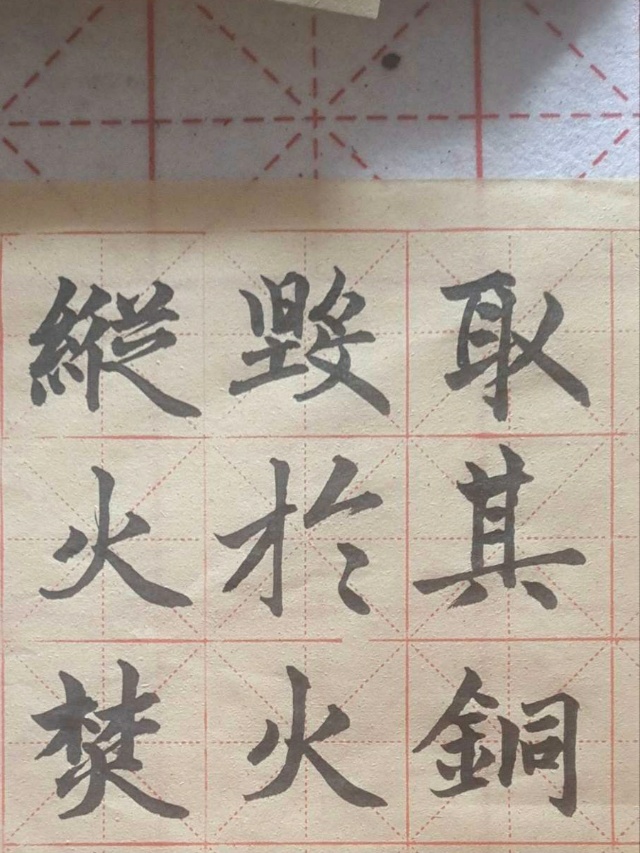 取其銅
毀於火
縱火焚